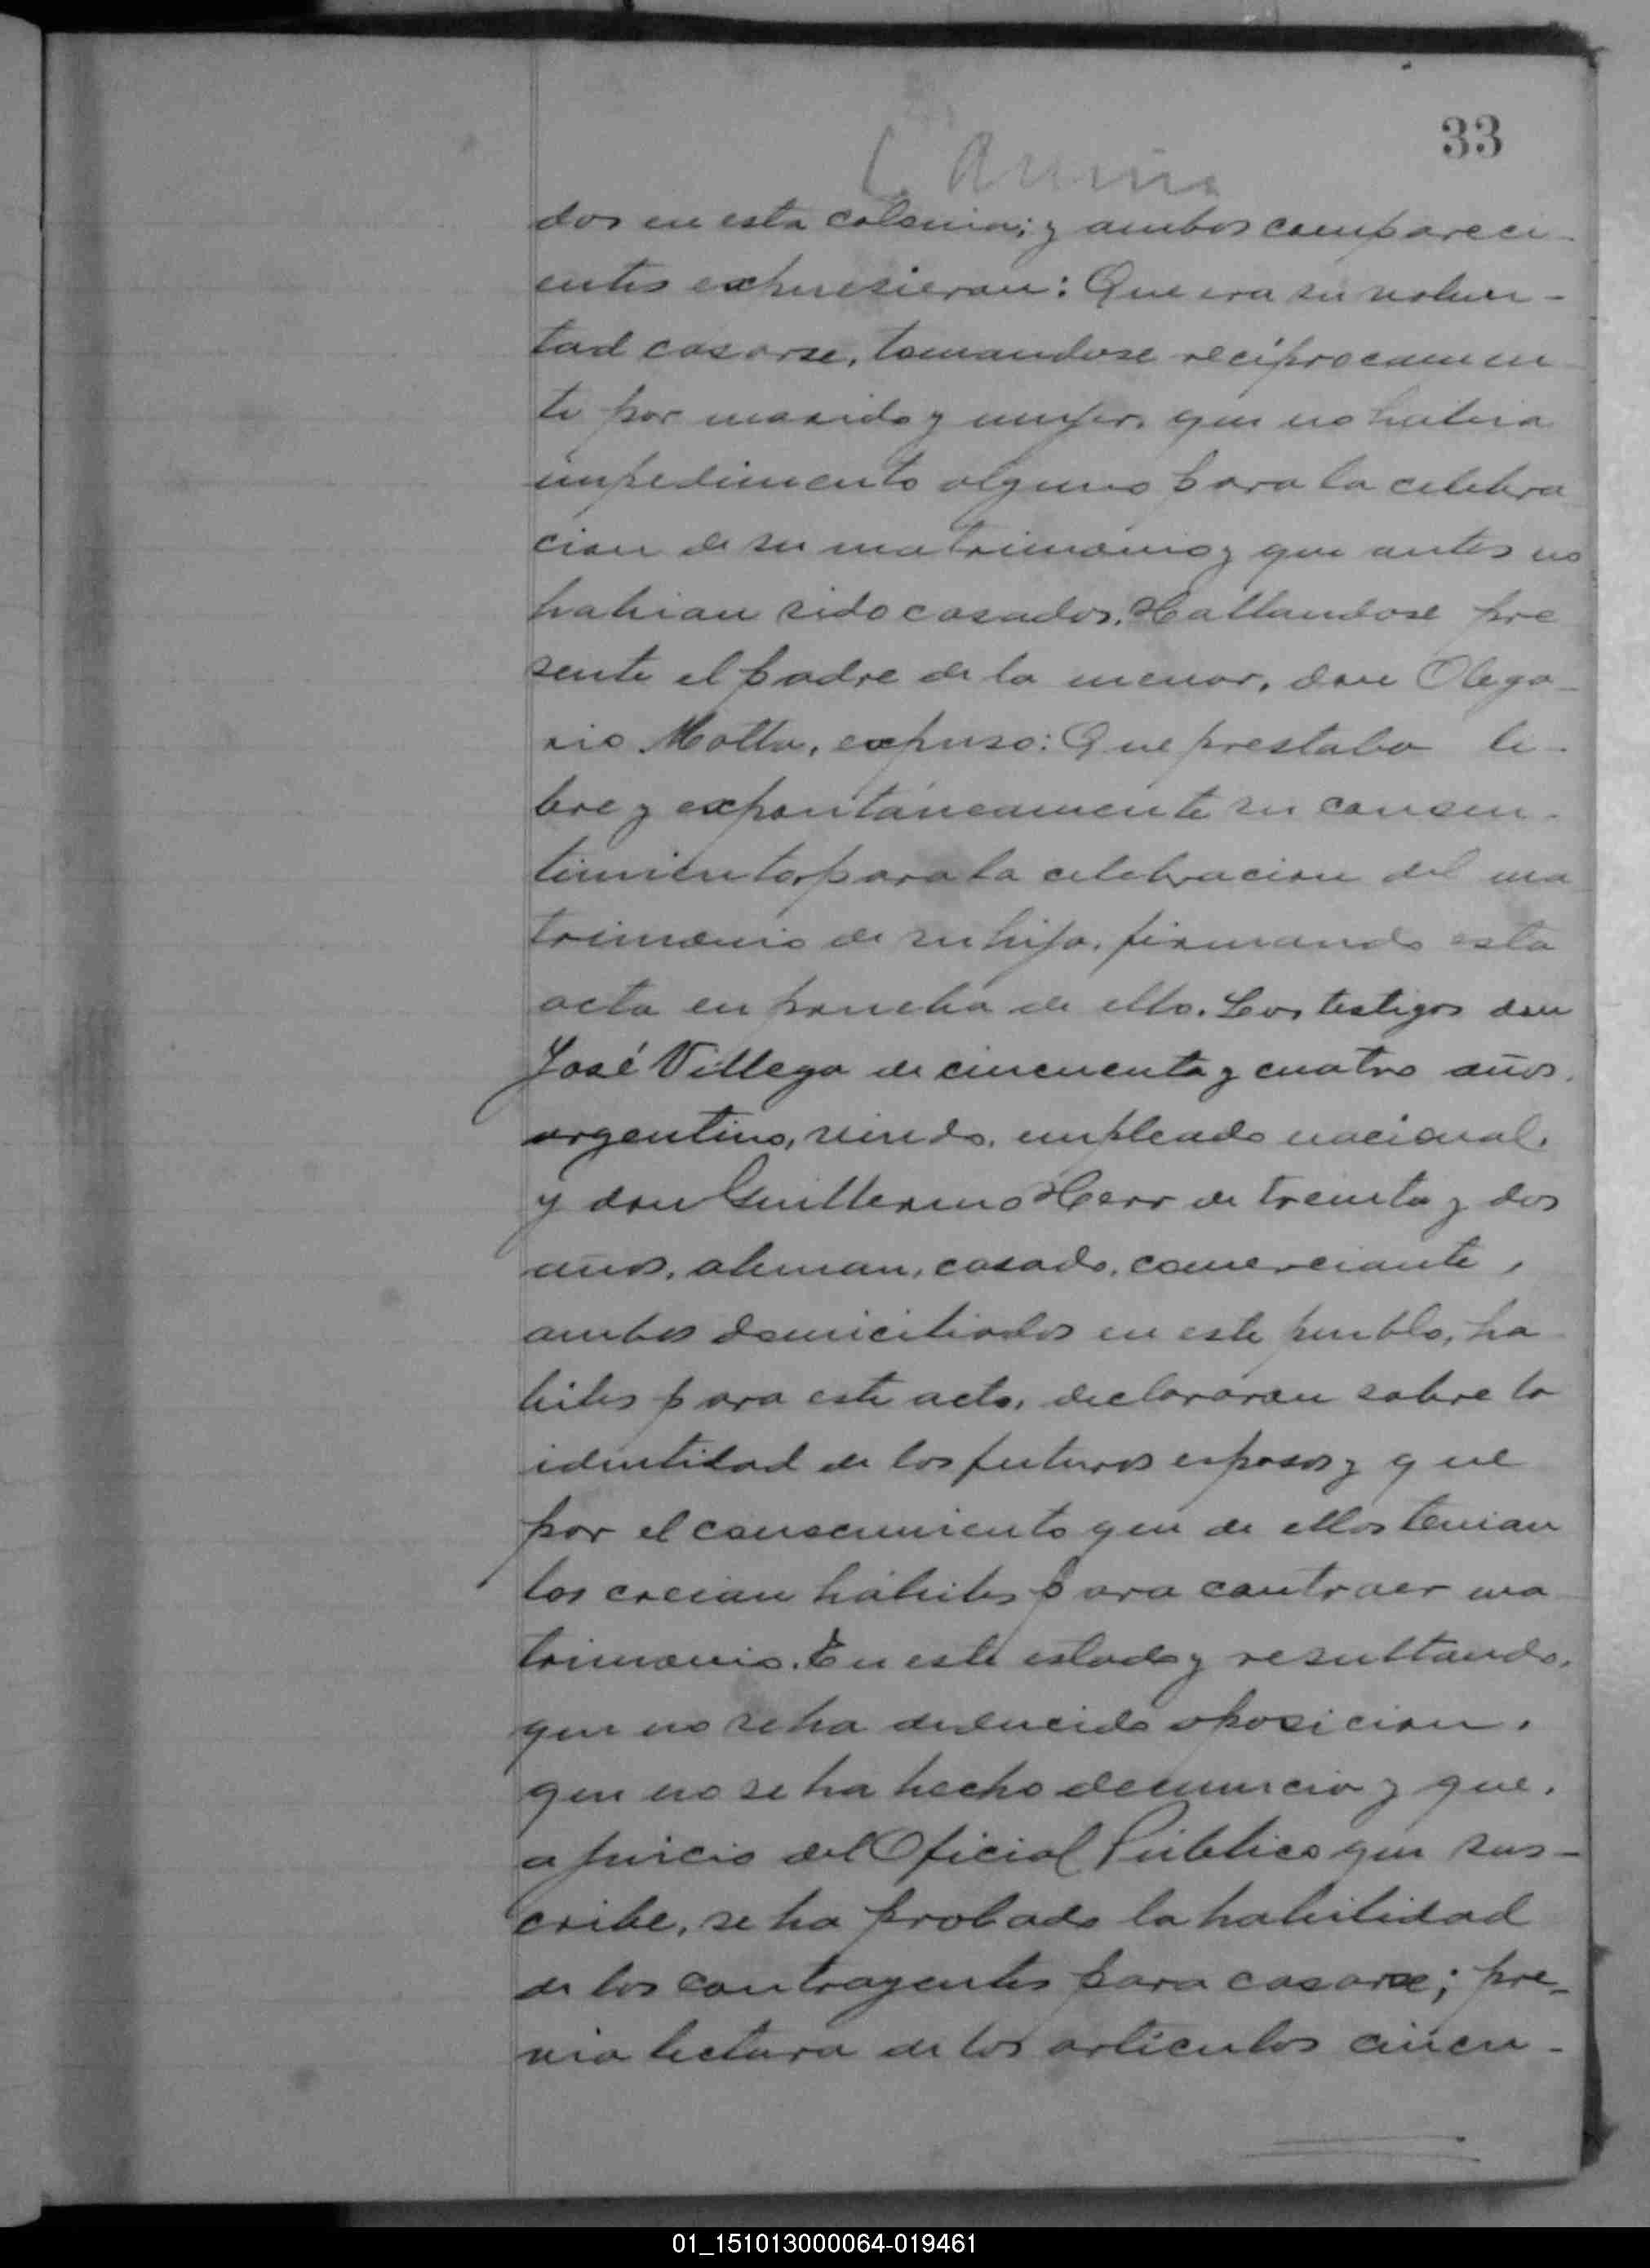 33
dos en esta colonia; y ambos compareci-
entes expusieron: Que era su volun-
tad casarse, tomandose reciprocamen
te por marido y mujer, que no habia
impedimento alguno para la celebra
cion de su matrimonio y que antes no
habian sido casados. Hallandose pre
sente el padre de la menor, don Olega-
rio Motta, expuso: Que prestaba li-
bre y expontáneamente su consen-
timiento para la celebracion del ma
trimonio de su hija, firmando esta
acta en prueba de ello. Los testigos don
José Villega de cincuenta y cuatro años,
argentino, viudo, empleado nacional,
y don Guillermo Herr de treinta y dos
años, aleman, casado, comerciante,
ambos domiciliados en este pueblo, ha
biles para este acto, declararon sobre la
identidad de los futuros esposos y que
por el conocimiento que de ellos tenian
los creian hábiles para contraer ma
trimonio. En este estado y resultando,
que no se ha deducido oposicion,
que no se ha hecho denuncia y que,
a juicio del Oficial Público que sus-
cribe, se ha probado la habilidad
de los contrayentes para casarse; pre-
via lectura de los articulos cincu-
01_151013000064-019461